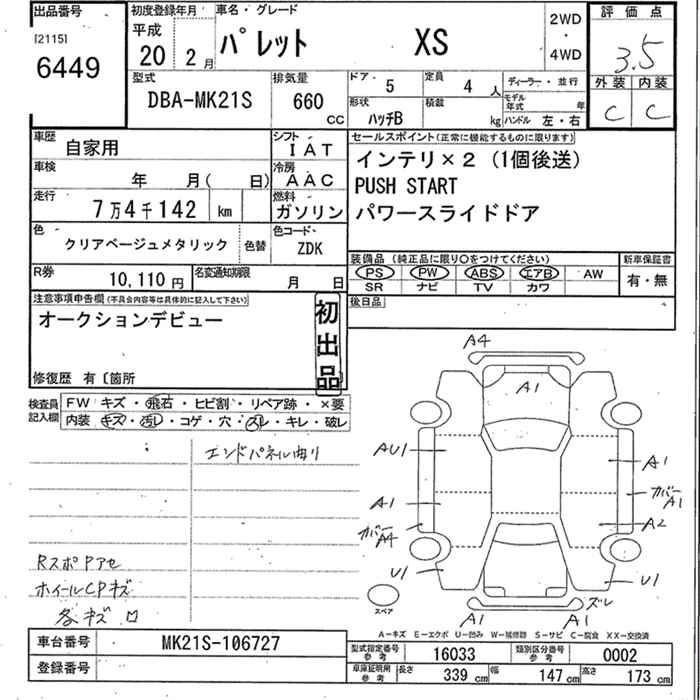 出品番号
[2115]
6449
初度登録年月
平成
20 2月
車名・グレード
パレット XS
2WD
・
4WD
評価点
3.5
外装 内装
C C
型式
DBA-MK21S
排気量
660 CC
ドア・ 5
形状 ハッチB
定員 4 人
積載 kg
ディーラー・並行
モデル年式 年
ハンドル 左・右
車歴 自家用
シフト IAT
車検 年 月( 日)
冷房 AAC
走行 7万4千142 km
燃料 ガソリン
色 クリアベージュメタリック
色替
色コード ZDK
R券 10,110円
名変通知期限 月 日
セールスポイント(正常に機能するものに限ります)
インテリ×2 (1個後送)
PUSH START
パワースライドドア
装備品 (純正品に限り○をつけてください)
PS PW ABS エアB AW
SR ナビ TV カワ
新車保証書
有・無
後日品
注意事項申告欄(不具合内容等は具体的に記入して下さい)
オークションデビュー
初出品
修復歴 有〔箇所
検査員記入欄
FW キズ・飛石・ヒビ割・リペア跡・×要
内装 キズ・汚レ・コゲ・穴・スレ・キレ・破レ
エンドパネル曲り
RスポPアセ
ホイールCPキズ
各キズ ロ
A4
A1
AU1
A1
A1
カバーA1
カバーA4
A2
U1
U1
スペア
A1
A1
ズレ
A－キズ E－エクボ U－凹み W－補修跡 S－サビ C－腐食 XX－交換済
車台番号 MK21S-106727
登録番号
型式指定番号 参考 16033
類別区分番号 参考 0002
車庫証明用 参考 長さ 339 cm 幅 147 cm 高さ 173 cm